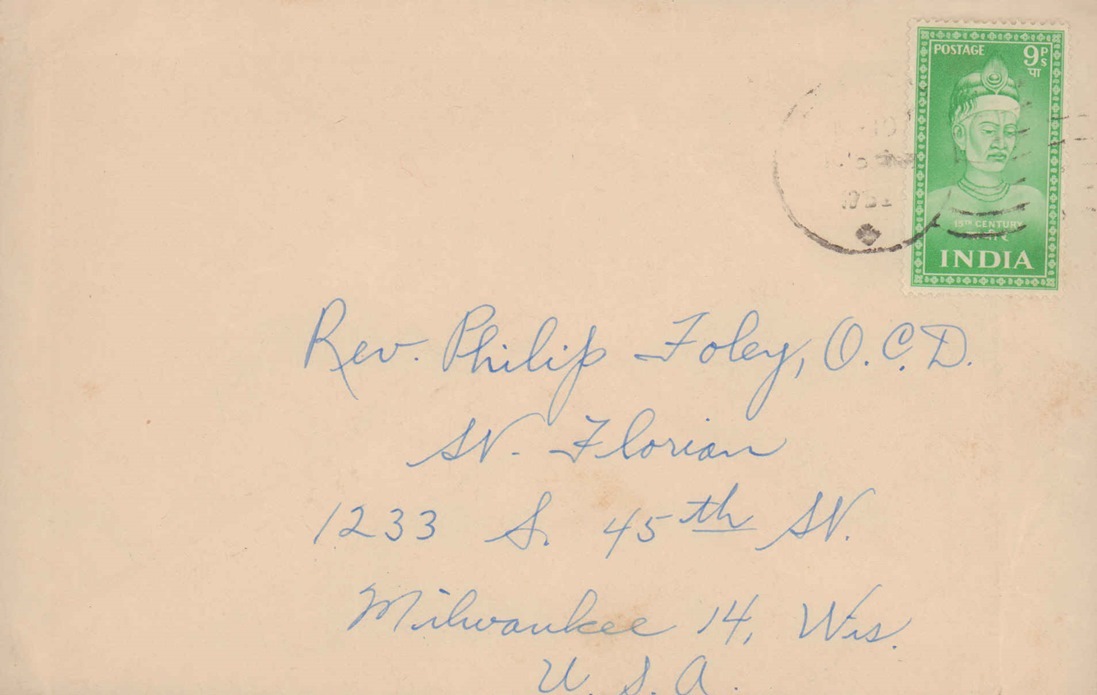 POSTAGE 9 PS
पा
15TH CENTURY
INDIA
Rev. Philip Foley, O.C.D.
St. Florian
1233 S. 45th St.
Milwaukee 14, Wis.
U.S.A.